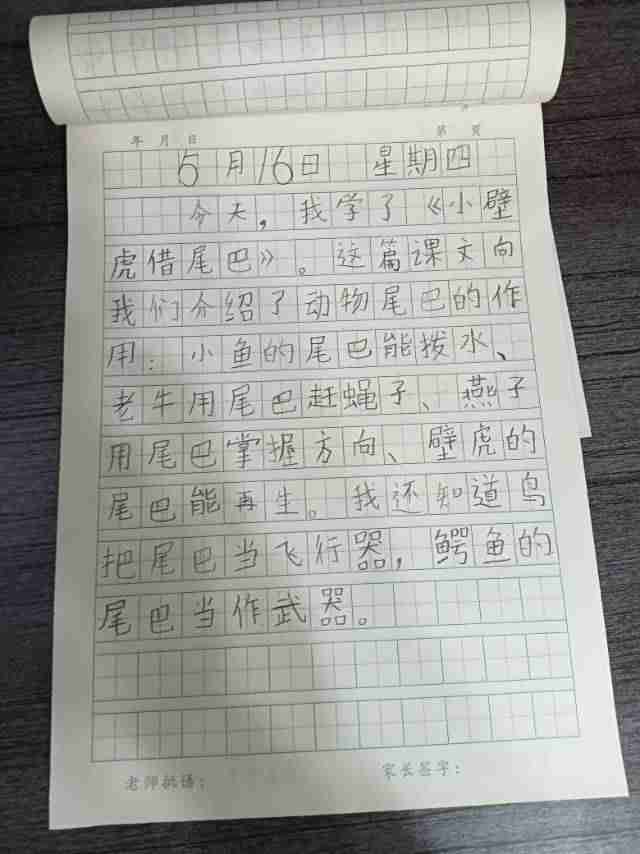 年 月 日 第 页
5月16日 星期四
今天，我学了《小壁
虎借尾巴》。这篇课文向
我们介绍了动物尾巴的作
用：小鱼的尾巴能拨水、
老牛用尾巴赶蝇子、燕子
用尾巴掌握方向、壁虎的
尾巴能再生。我还知道鸟
把尾巴当飞行器，鳄鱼的
尾巴当作武器。
老师批语： 家长签字：